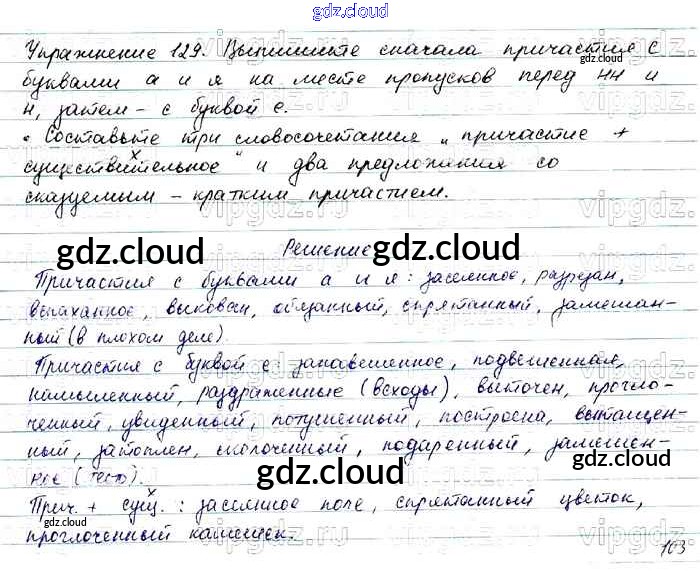 gdz.cloud
Упражнение 129. Выпишите сначала причастия с
буквами а и я на месте пропусков перед нн и
н, затем – с буквой е.
• Составьте три словосочетания „причастие +
существительное" и два предложения со
сказуемым – кратким причастием.
gdz.cloud Решение gdz.cloud
Причастия с буквами а и я: засеянное, разрезан,
вспаханное, выкован, обязанный, спрятанный, замешан-
ный (в плохом деле).
Причастия с буквой е: занавешенное, подвешенная,
намыленный, раздраженные (всходы), выточен, прогло-
ченный, увиденный, потушенный, построена, вытащен-
ный, затоплен, сколоченный, подпиренный, замешен-
ное (тесто). gdz.cloud gdz.cloud
Прич. + сущ.: засеянное поле, спрятанный цветок,
проглоченный камешек.
gdz.cloud
103